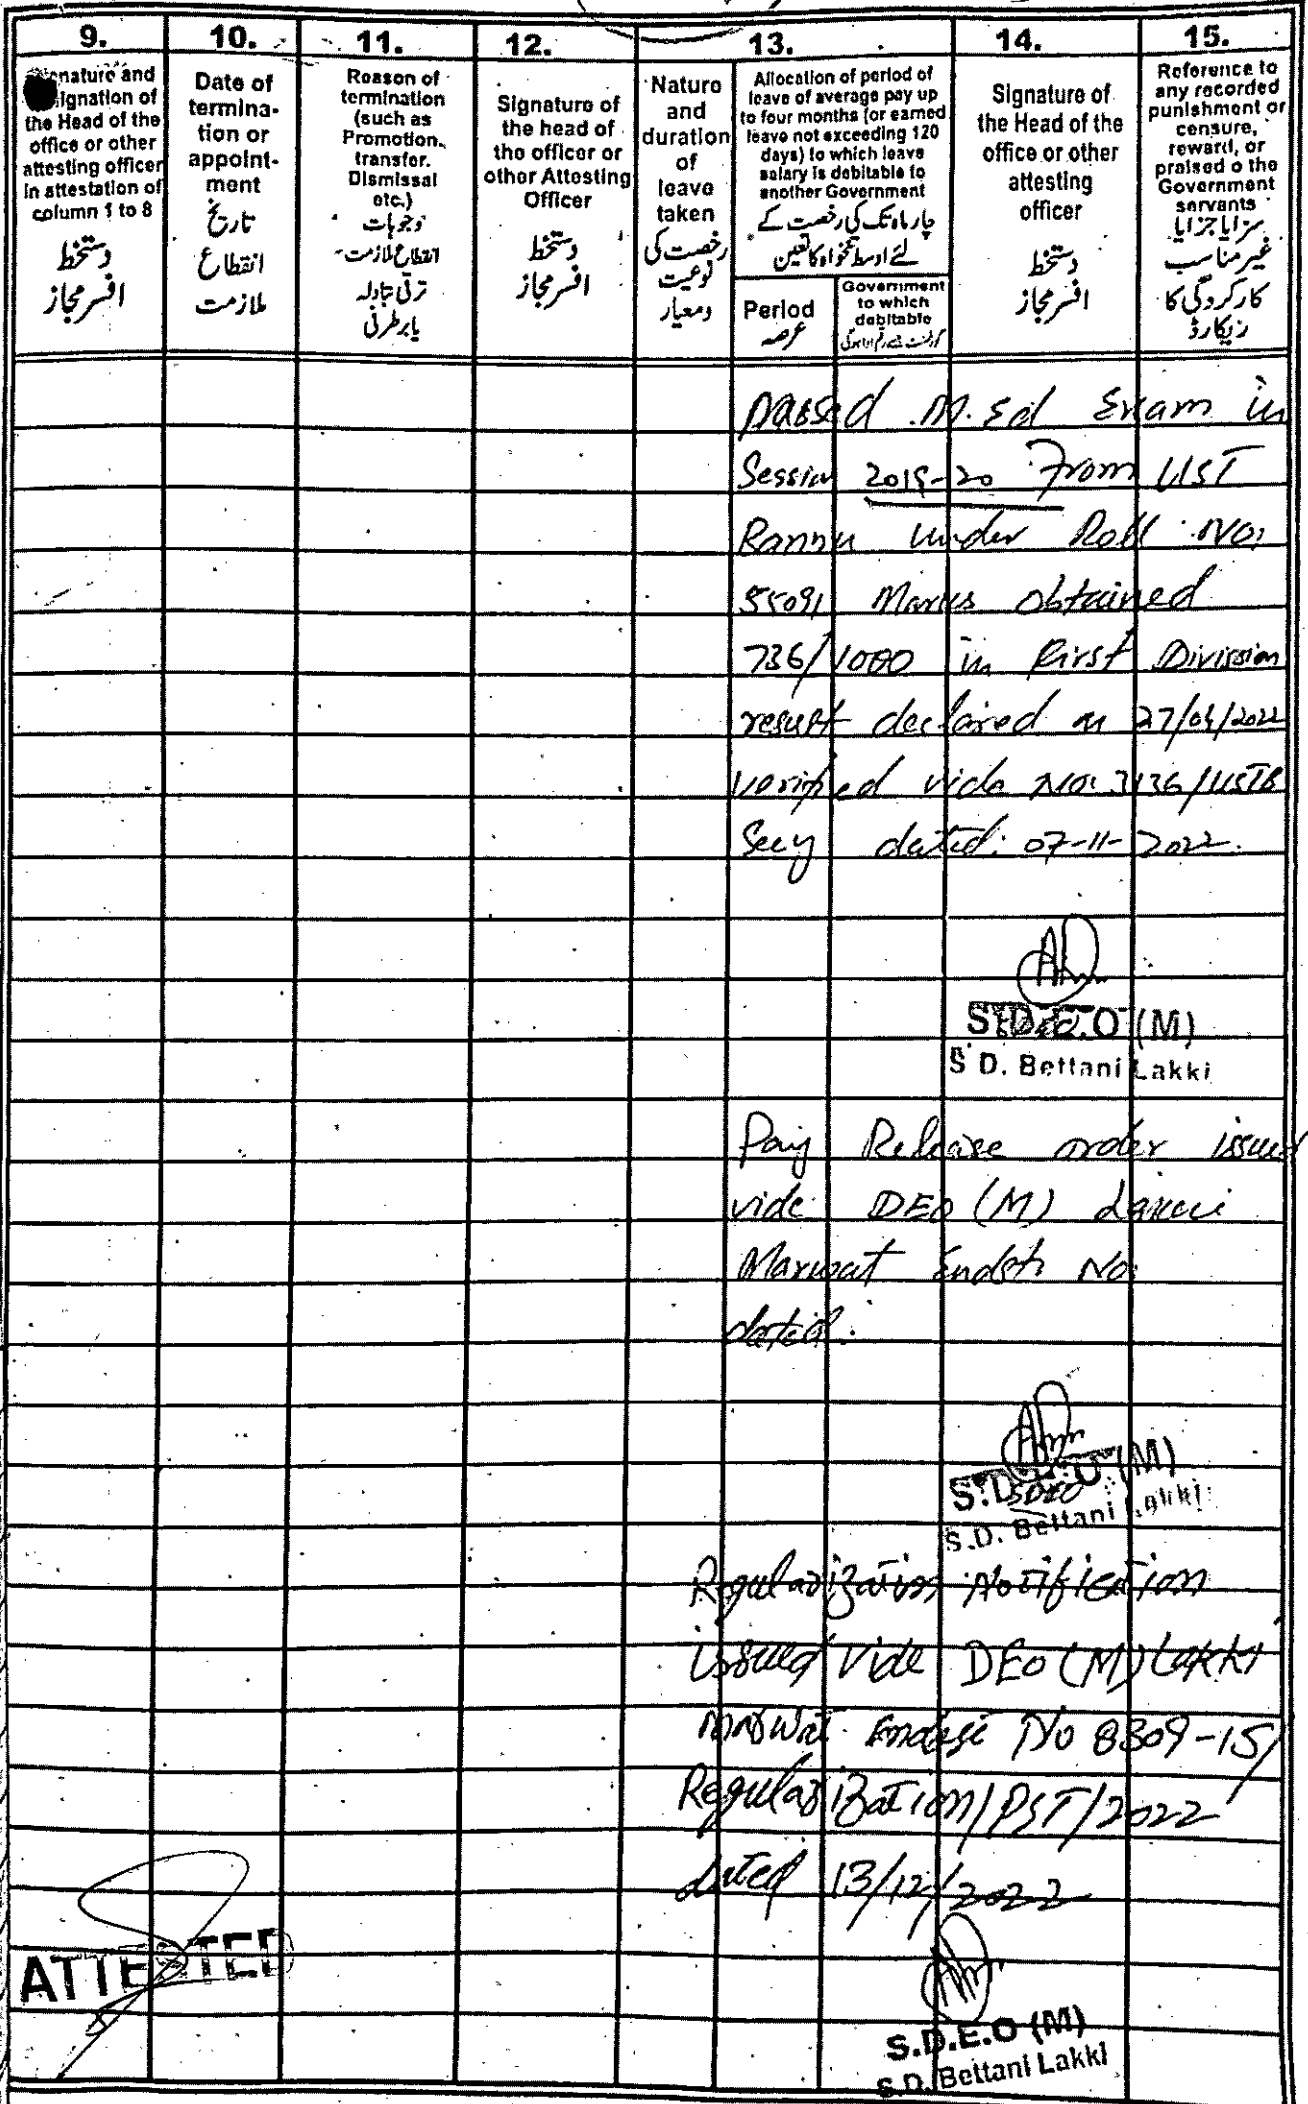 9.
10.
11.
12.
13.
14.
15.
nature and
ignation of
the Head of the
office or other
attesting officer
in attestation of
column 1 to 8
دستخط
افسر مجاز
Date of
termina-
tion or
appoint-
ment
تاریخ
انقطاع
ملازمت
Reason of
termination
(such as
Promotion,
transfer.
Dismissal
etc.)
وجوہات
انقطاع ملازمت
ترقی تبادلہ
یا برطرفی
Signature of
the head of
the officer or
other Attesting
Officer
دستخط
افسر مجاز
Nature
and
duration
of
leave
taken
رخصت کی
نوعیت
ومعیار
Allocation of period of
leave of average pay up
to four months (or earned
leave not exceeding 120
days) to which leave
salary is debitable to
another Government
چار ماہ تک کی رخصت کے
لئے اوسط تنخواہ کا تعین
Period
عرصہ
Government
to which
debitable
Signature of
the Head of the
office or other
attesting
officer
دستخط
افسر مجاز
Reference to
any recorded
punishment or
censure,
reward, or
praised o the
Government
servants
سزایا جزایا
غیر مناسب
کارکردگی کا
ریکارڈ
passed M.Ed Exam in
Session 2019-20 From UST
Bannu under Roll No:
55091 Marks obtained
736/1000 in First Division
result declared on 27/04/2022
verified vide No: 3136/USTB
Secy dated: 07-11-2022.
S.D.E.O (M)
S D. Bettani Lakki
Pay Release order issued
vide DEO (M) Lakki
Marwat Endst: No:
dated:
S.D.E.O (M)
SDEO
S.D. Bettani Lakki
Regularization Notification
issued vide DEO (M) Lakki
Marwat Endost No 8309-15/
Regularization/PST/2022
dated 13/12/2022
ATTESTED
S.D.E.O (M)
S.D. Bettani Lakki